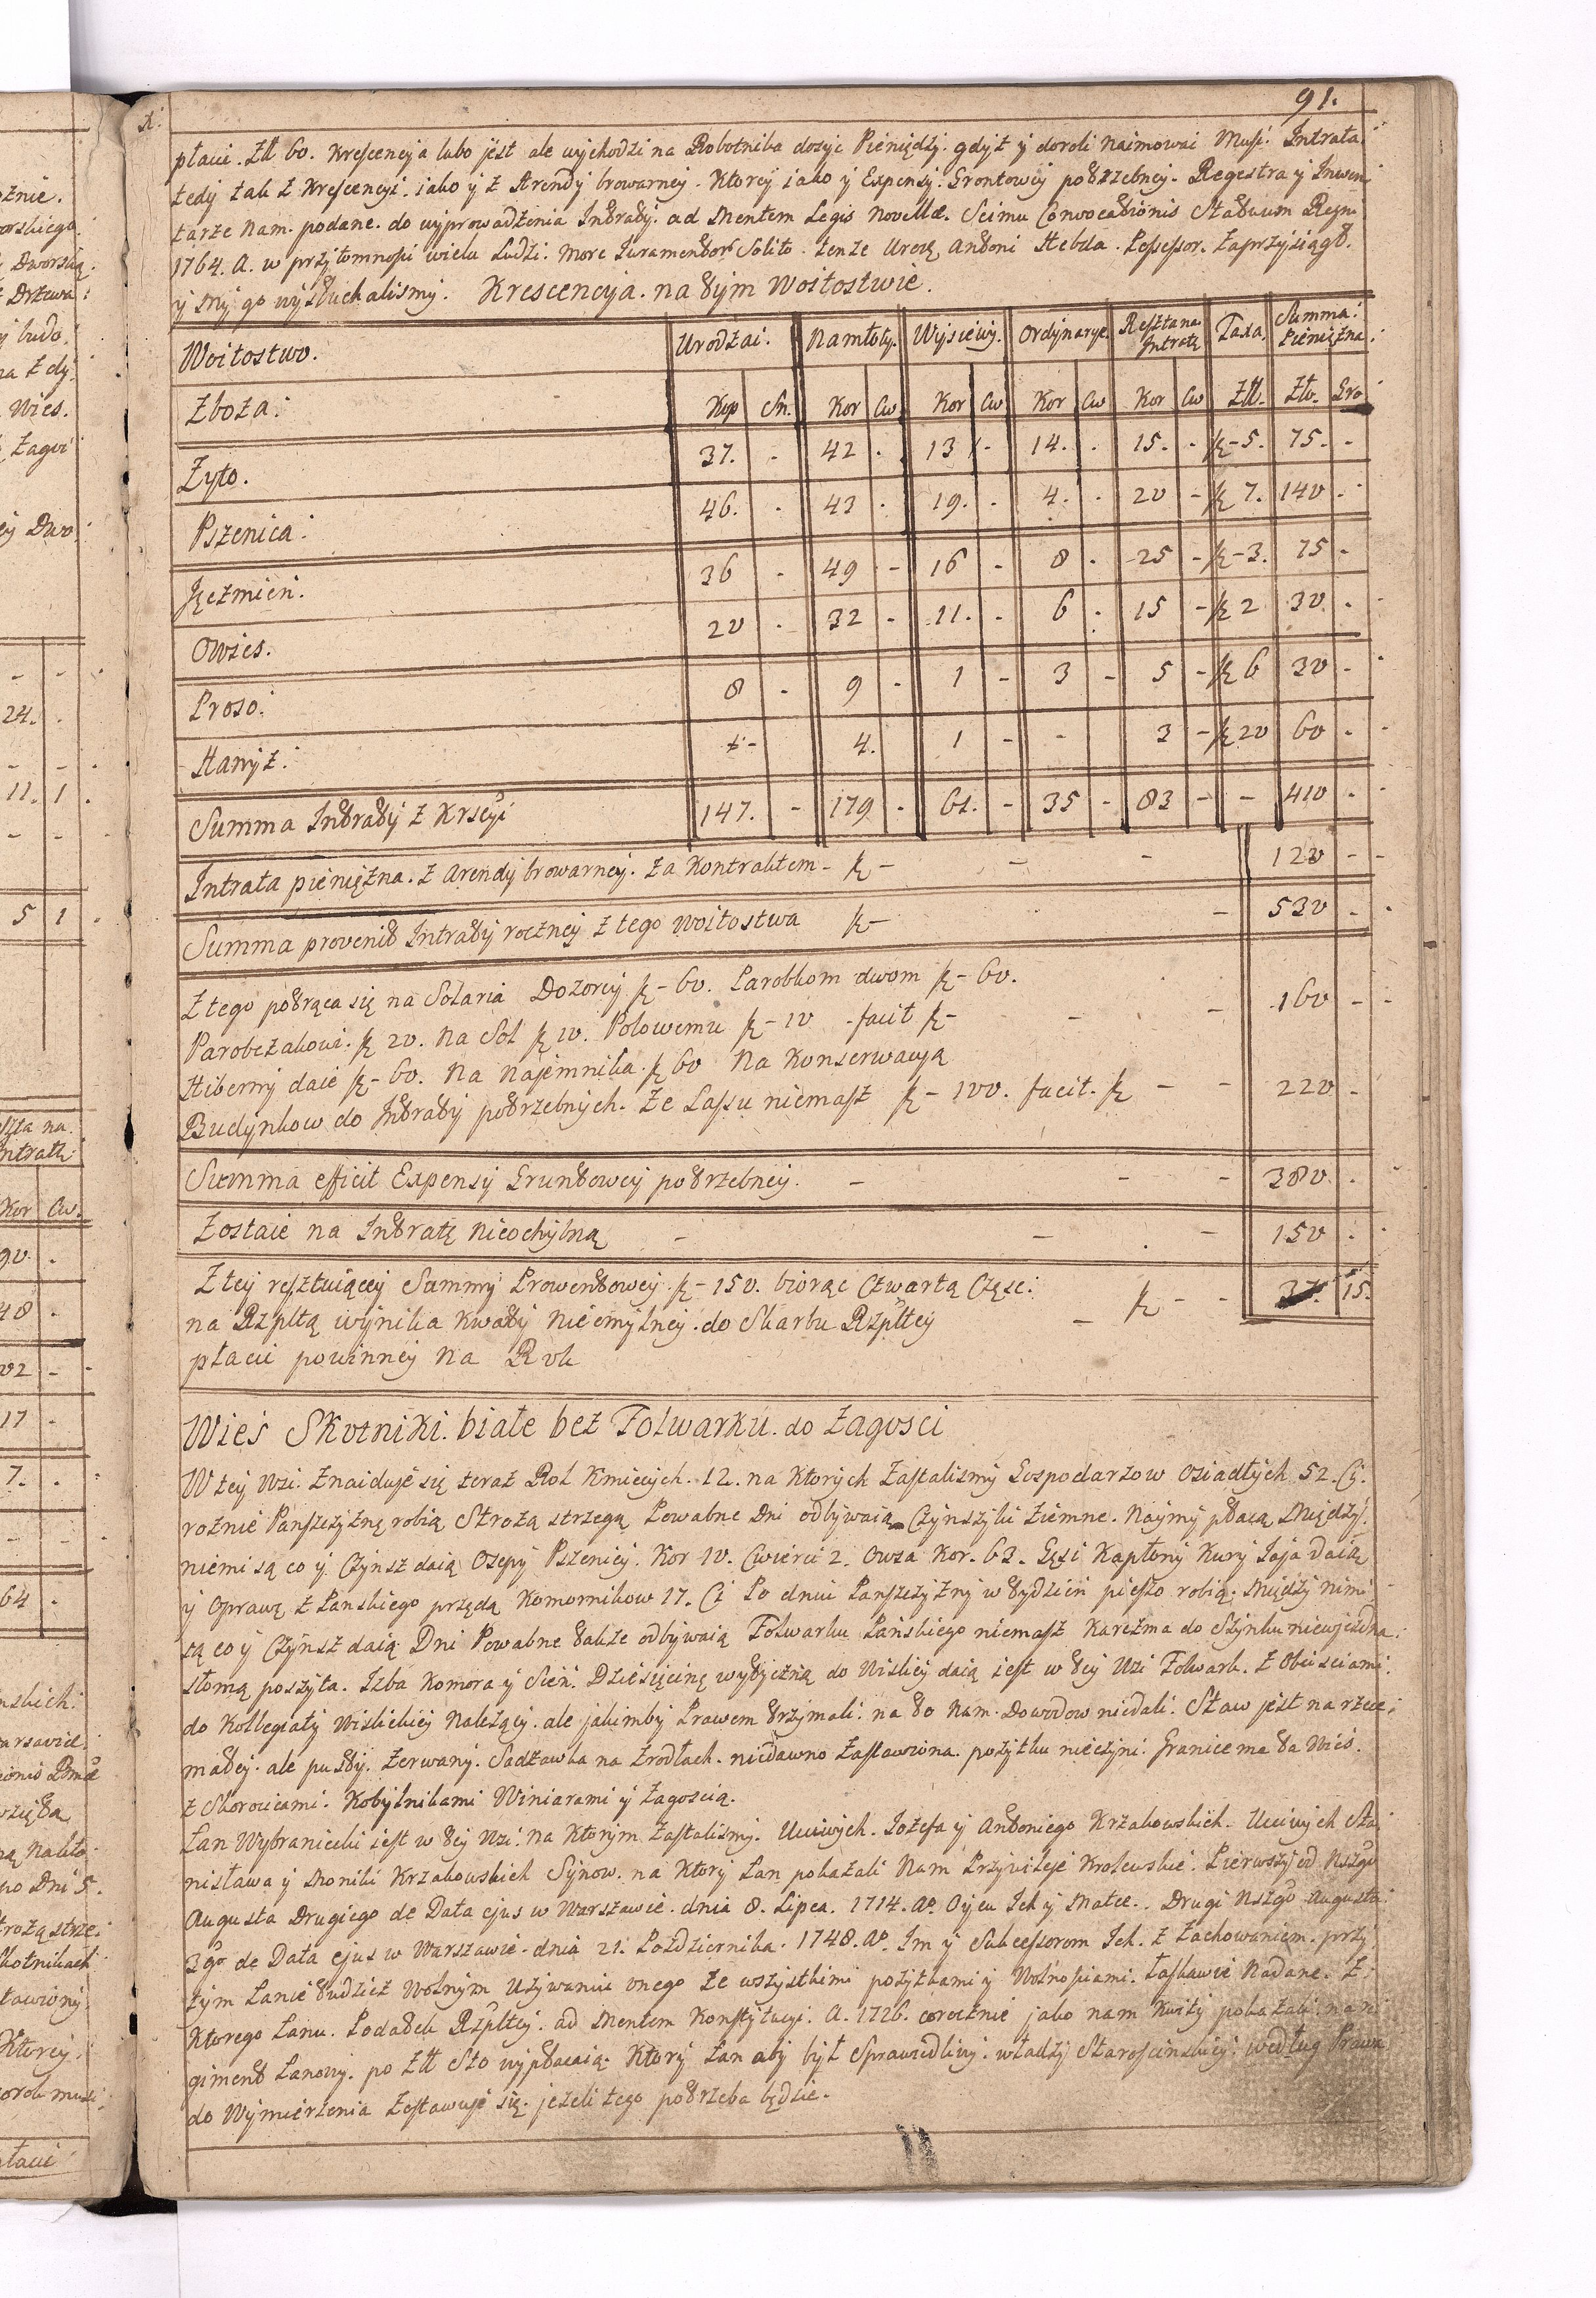 91.
płaci. Zll 60. Krescencya lubo jest ale wychodzi na Robotnika dosyc Pieniędzy. gdyż y do roli naimowai Musi. Intrata
tedy tak z Krescencyi. iako y z Arendy browarney. Ktorey iako y Expensy. Grontowey potrzebney. Regestra y Inwen
tarze Nam. podane. do wyprowadzenia Intraty. ad Mentem Legis Novellæ. Seimu Convocationis Statuum Regni
1764. A. w przytomnosci wielu Ludzi. More Juramentor Solito. tenze Antoni Hebda. Possessor. Zaprzysiągł.
y My go wysłuchalismy. Krescencyia. na tym Woitostwie.
Woitostwo. Urodzai. Namłoty. Wysiewy. Ordynarye. Reszta na Intratę Taxa. Summa Pieniężna
Zboza: Kop Sn. Kor Cw Kor Cw Kor Cw Kor Cw Zll. Zło. Gro
Zyto. 37. - 42 . 13 - 14. . 15. - ƶ-5. 75. -
Pszenica. 46. . 43 . 19. - 4. . 20 - ƶ 7. 140 .
Jęczmien. 36 . 49 - 16 - 8 . 25 - ƶ-3. 75 -
Owies. 20 . 32 - 11. - 6 . 15 - ƶ 2 30 .
Proso. 8 - 9 - 1 - 3 - 5 - ƶ 6 30 -
Hanyż. - 4. 1 - - 3 - ƶ 20 60 .
Summa Intraty z Krscyi 147. - 179 - 61. - 35 - 83 - - 410 .
Intrata pieniężna. z arendy browarney. za Kontraktem - ƶ - - - 120 -
Summa provenit Intraty roczney z tego Woitostwa ƶ - - 530 .
Z tego potrąca się na Solaria Dozorcy ƶ - 60. Parobkom dwom ƶ - 60.
Parobczakowi. ƶ 20. Na Sol ƶ 10. Polowemu ƶ - 10 - facit ƶ - - - 160 -
Hiberny daie ƶ - 60. Na Najemnika. ƶ 60 Na Konserwacyą
Budynkow do Intraty potrzebnych. Ze Lassu niemasz ƶ - 100. facit. ƶ - - 220 .
Summa efficit Expensy Gruntowey potrzebney. - - - 380 .
Zostaie na Intratę Nieochybną - - - 150 .
Z tey resztuiącey Summy Prowentowey. ƶ - 150. biorąc Czwartą Częsc:
na Rzpltą wynika Kwaty Nieomylney. do Skarbu Rzpltey - ƶ - - 37. 15.
płacic powinney na Rok
Wieś Skotniki. białe bez Folwarku. do Zagosci
W tey Wsi. Znaiduje się teraz Rol Kmiecych. 12. na Ktorych Zastalismy Gospodarzow osiadłych 52. Ci.
roznie Panszczyznę robią Strozą strzegą Powabne Dni odbywaią Czynszyki Ziemne. Naymy płacą Między
niemi są co y Czynsz daią Osepy Pszenicy. Kor 10. Cwierci 2. Owsa Kor. 63. Gęsi Kapłony Kury Jaja daią
y Oprawę z Panskiego przędą Komornikow 17. Ci Po dniu Panszczyzny w tydzień pieszo robią. Między nimi
są co y Czynsz daią Dni Powabne także odbywaią Folwarku Pańskiego niemasz Karczma do Szynku niewjezdna
słomą poszyta. Izba Komora y Sień. Dziesięcinę wytyczną do Wislicy daią iest w tey Wsi Folwark. z Obeisciami.
do Kollegiaty Wislickiey Należący. ale jakimby Prawem trzymali. na to Nam. Dowodow niedali. Staw jest na rzece
małey. ale pusty. Zerwany. Sadzawka na Zrodłach. niedawno Zastawiona. pozytku nieczyni. Granice ma ta Wieś.
z Skorocicami. Kobylnikami Winiarami y Zagoscią.
Łan Wybraniecki iest w tey Wsi. na Ktorym Zastalismy. Uczciwych. Jozefa y Antoniego Krzakowskich. Uczciwych Sta
nisława y Moniki Krzakowskich Synow. na Ktory Łan pokazali Nam Przywileje Krolewskie. Pierwszy od Nsżgo
Augusta Drugiego de Data ejus w Warszawie. dnia 8. Lipca. 1714. Ao. Oycu Ich y Matce.. Drugi Nszgo Augusta
3go de Data ejus w Warszawie - dnia 21. Pozdziernika. 1748. Ao. Im y Sukcessorom Ich. z Zachowaniem. przy
tym Łanie tudziez Wolnym Uzywaniu onego ze wszystkimi pozytkami y Wolnosciami. Łaskawie Nadane. Z
Ktorego Łanu. Podatek Rzpltey. ad Mentem Konstytucyi. A. 1726. corocznie jako nam Kwity pokazali na ni
giment Łanowy. po Zll Sto wypłacaią. Ktory Łan aby był Sprawiedliwy. władzy Starościnskiey. według Prawa
do Wymierzenia Zostawuje się. jeżeli tego potrzeba będzie.